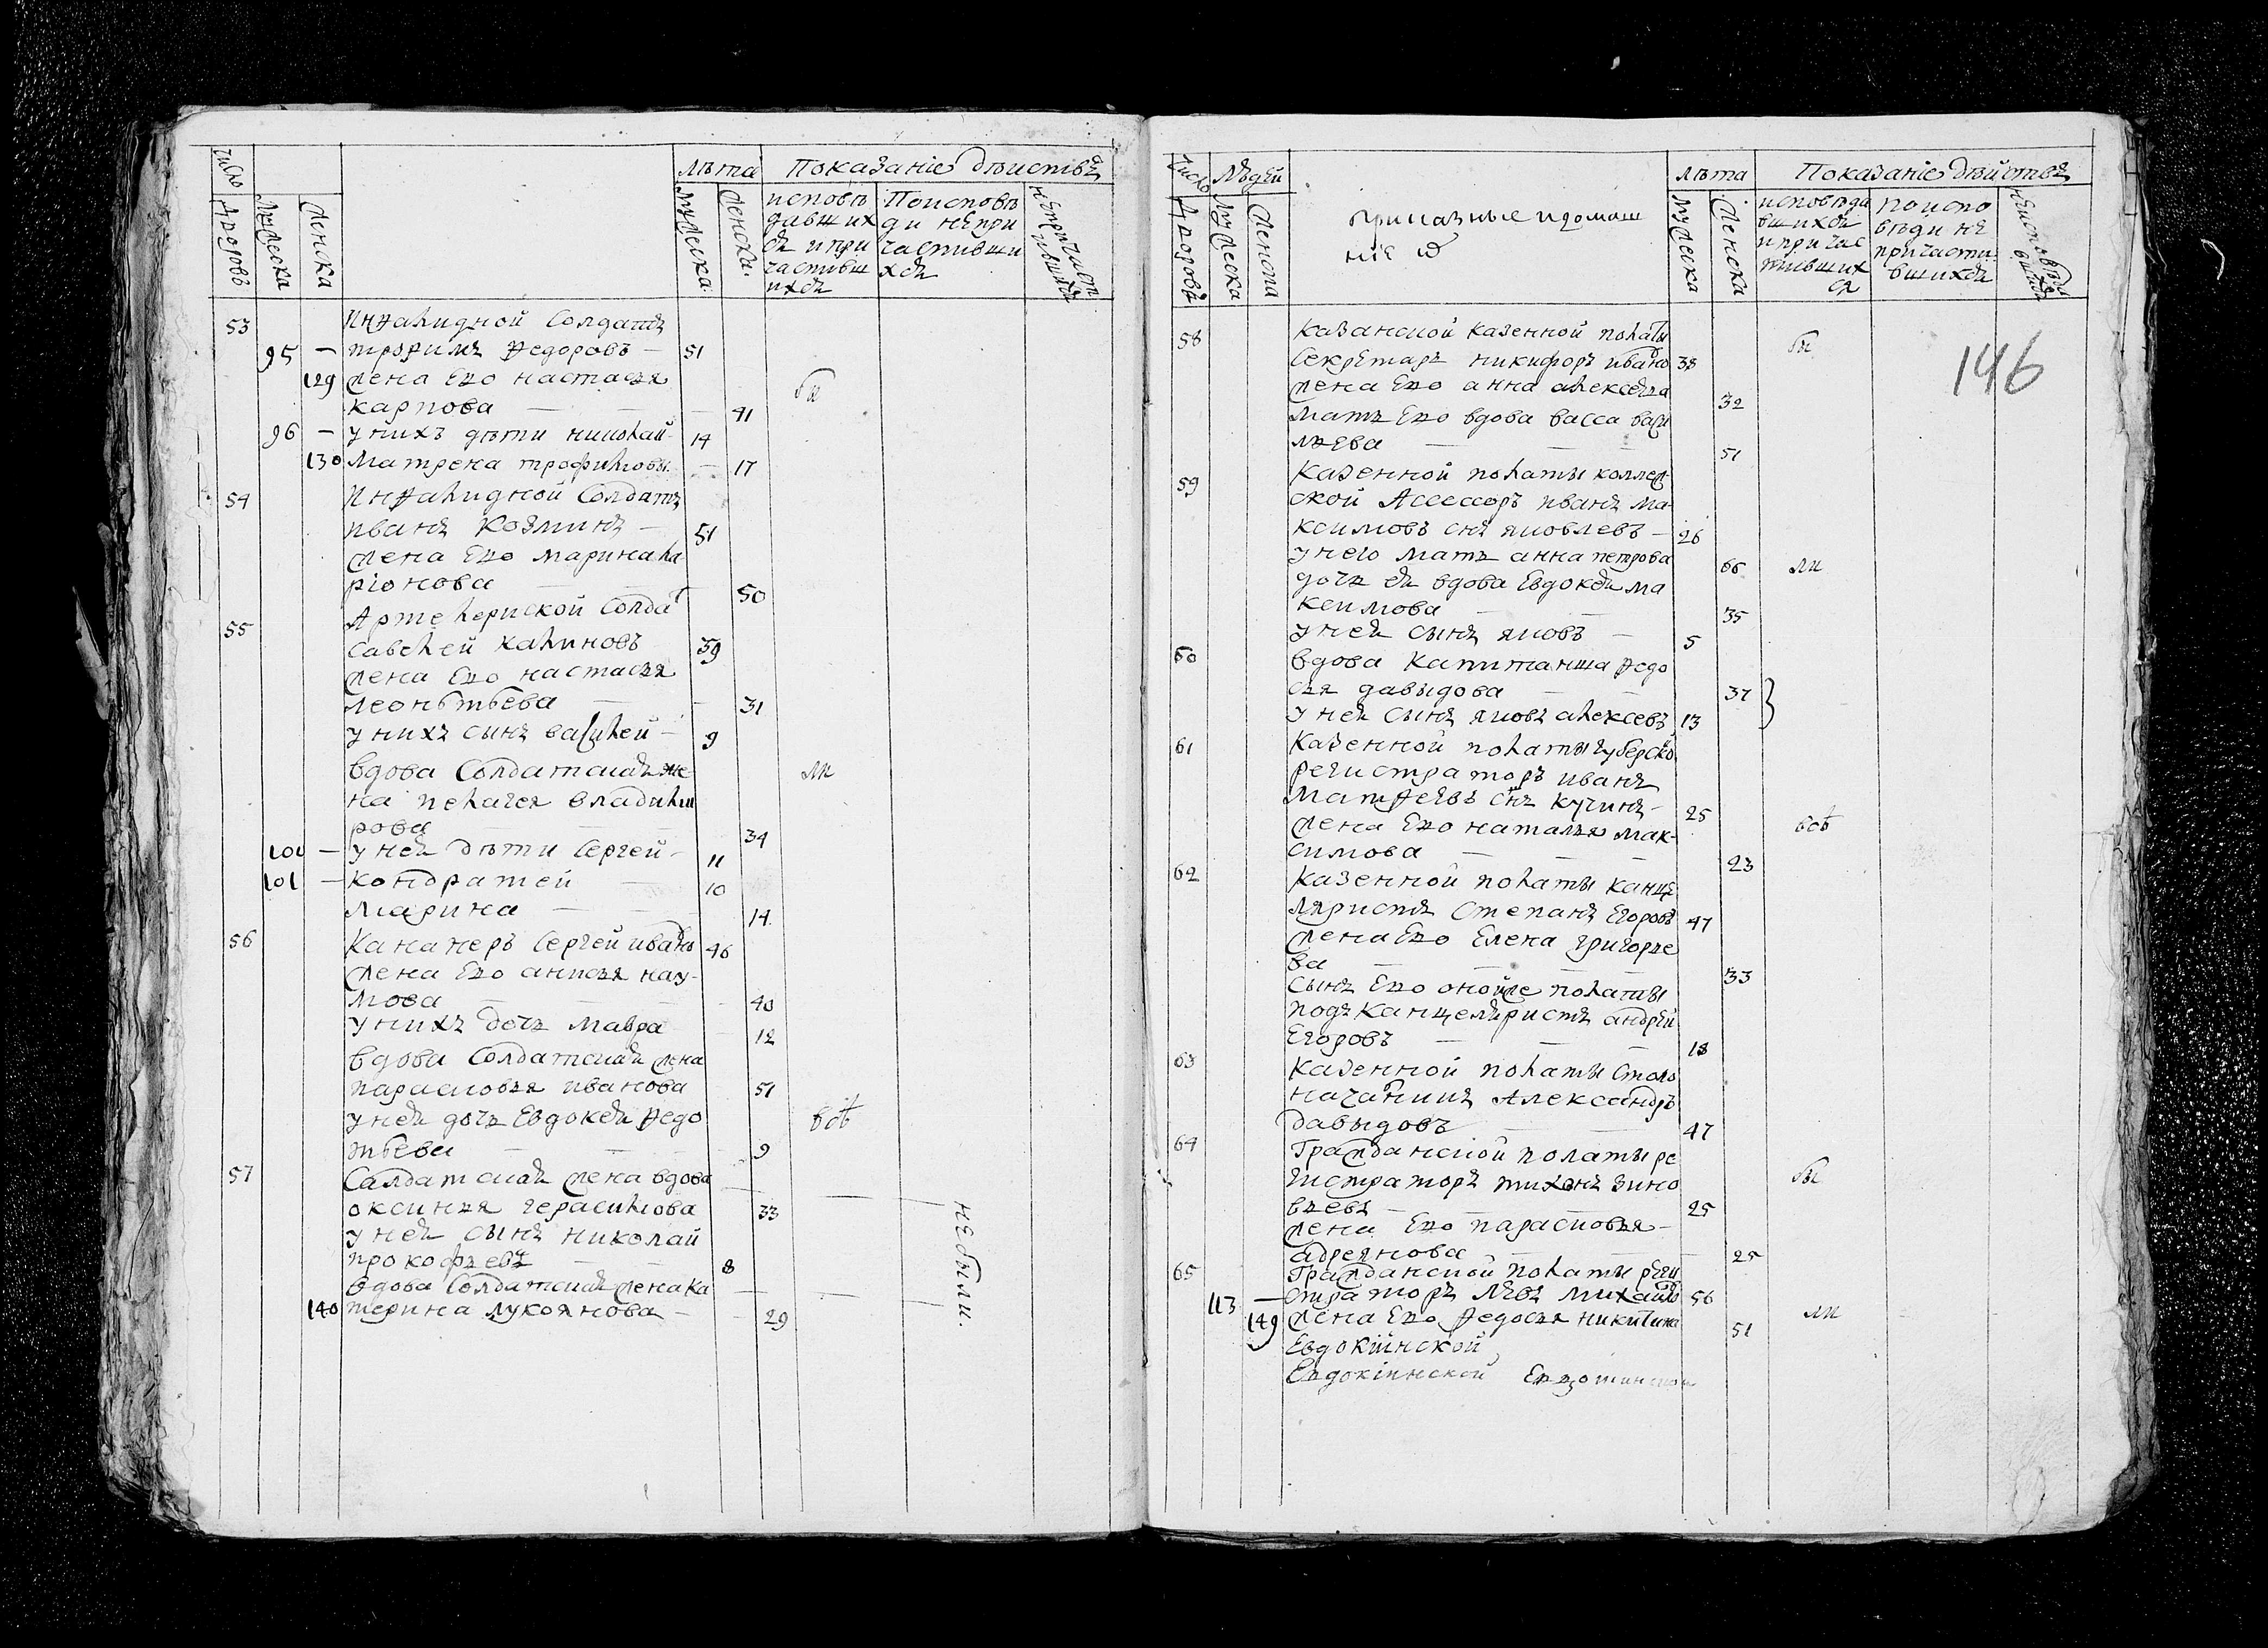 число
дворовъ
мужеска
женска
лѣта
мужеска
женска
Показаніе дѣиствъ
исповѣ
давших
ся и при
частивш
ихся
По исповѣ
ди не при
частивши
хся
53 Инвалидной Солдатъ
95 — трофимъ федоровъ — 51
129 жена Его настасья
карпова — 41
бы
96 — у нихъ дѣти николай 14
130 Матрена трофимовы — 17
54 Инвалидной Солдатъ
иванъ Козминъ — 51
жена Его марина ла
ріонова — 50
55 Артелериской Солдат
савелей калиновъ 39
жена Его настасья
леонътьева — 31
у нихъ сынъ василей — 9
вдова Солдатская же
ли
на пелагея владими
рова 34
100 — у ней дѣти Сергей 11
101 — кондратей 10
Марина — 14
56 Кананеръ Сергей ивано 46
жена Его анисья нау-
мова — 40
у нихъ дочь мавра 12
вдова Солдатская жена
парасковья иванова 51
у ней дочь Евдокея федо
всѣ
тьева — 9
57 Салдатская жена вдова
оксинья герасимова — 33
у ней сынъ николай
прокофьевъ — 8
вдова Солдатская жена ка
140 терина лукоянова — 29
не были.
число
дворовъ
людей
мужеска
женска
приказные и домаш
ніе
лѣта
мужеска
женска
Показаніе дѣйствъ
исповѣда
вшихся
и причас
тивших
ся
по испо
вѣди не
причасти
вшихся
146
58 Казанской казенной полаты
бы
Секретарь никифоръ ивано 38
жена Его анна алексеева
32
мать Его вдова васса васи
льева — 51
59 Казенной полаты коллеж
ской Асессоръ иванъ ма
ксимовъ снъ яковлевъ — 26
у него мать анна петрова
66 ли
дочь ея вдова Евдокея ма
ксимова — 35
у ней сынъ яковъ — 5
60 вдова капитанша федо
сья давыдова — 37
у ней сынъ яковъ алексеевъ 13
61 Казенной полаты губерско
регистраторъ иванъ
матфеевъ снъ кучинъ 25
жена Его наталья мак-
всѣ
симова — 23
62 Казенной полаты канце
ляристъ Степанъ Егоровъ 47
жена Его Елена григорье
ва — 33
сынъ Его оной же полаты
подъ Канцеляристъ андрей
Егоровъ — 18
63 Казенной полаты Столо
началникъ Александръ
давыдовъ — 47
64 Гражданской полаты ре
гистраторъ тихонъ зино
бы
вьевъ — 25
жена Его парасковья —
адреянова — 25
65 Гражданской полаты реги
113 — страторъ Левъ михайло 56
149 жена Его федосья никитина 51
ли
Евдокіинской
Евдокіинской